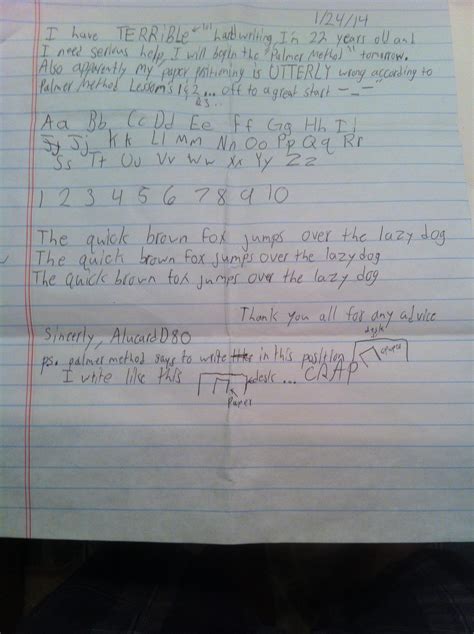 1/24/14
I have TERRIBLE "lol" handwriting I'm 22 years old and
I need serious help, I will begin the "Palmer Method" tomorrow.
Also apparently my paper positioning is UTTERLY wrong according to
Palmer Method Lessons 1 & 2 ... off to a great start -_-"
& 3
Aa Bb Cc Dd Ee Ff Gg Hh Ii
Jj Kk Ll Mm Nn Oo Pp Qq Rr
Ss Tt Uu Vv Ww Xx Yy Zz
1 2 3 4 5 6 7 8 9 10
The quick brown fox jumps over the lazy dog
The quick brown fox jumps over the lazy dog
The quick brown fox jumps over the lazy dog
Thank you all for any advice
Sincerly, AlucardD80
desk
ps. palmer method says to write in this position paper
I write like this desk ... CRAP
paper